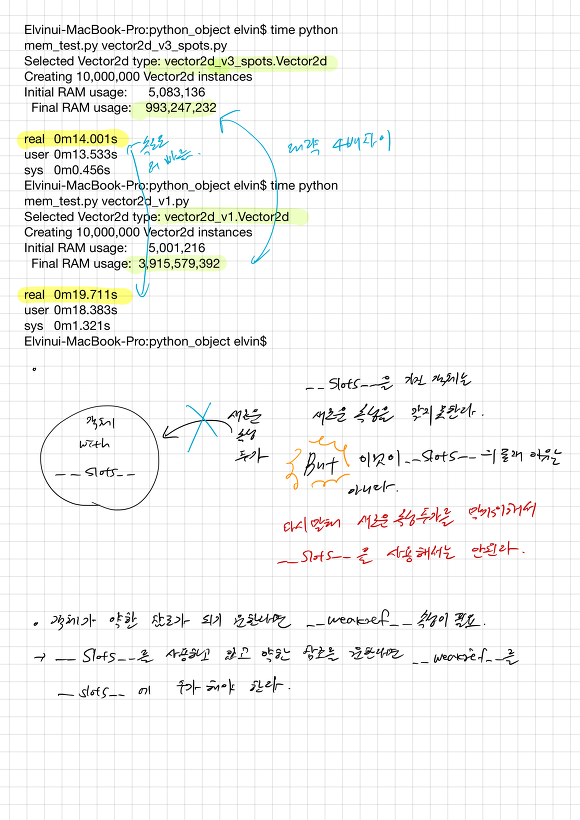 Elvinui-MacBook-Pro:python_object elvin$ time python
mem_test.py vector2d_v3_spots.py
Selected Vector2d type: vector2d_v3_spots.Vector2d
Creating 10,000,000 Vector2d instances
Initial RAM usage: 5,083,136
Final RAM usage: 993,247,232
real 0m14.001s
user 0m13.533s
sys 0m0.456s
속도도
더 빠름.
대략 4배차이
Elvinui-MacBook-Pro:python_object elvin$ time python
mem_test.py vector2d_v1.py
Selected Vector2d type: vector2d_v1.Vector2d
Creating 10,000,000 Vector2d instances
Initial RAM usage: 5,001,216
Final RAM usage: 3,915,579,392
real 0m19.711s
user 0m18.383s
sys 0m1.321s
Elvinui-MacBook-Pro:python_object elvin$
객체
with
__slots__
새로운
속성
추가
__slots__을 가진 객체는
새로운 속성을 갖지 못한다.
But 이것이 __slots__의 본래 이유는
아니다.
다시 말해 새로운 속성추가를 막기위해서
__slots__을 사용해서는 안된다.
• 객체가 약한 참조가 되기 원한다면 __weakref__ 속성이 필요.
→ __slots__를 사용하고 있고 약한 참조를 원한다면 __weakref__를
__slots__에 추가해야 한다.